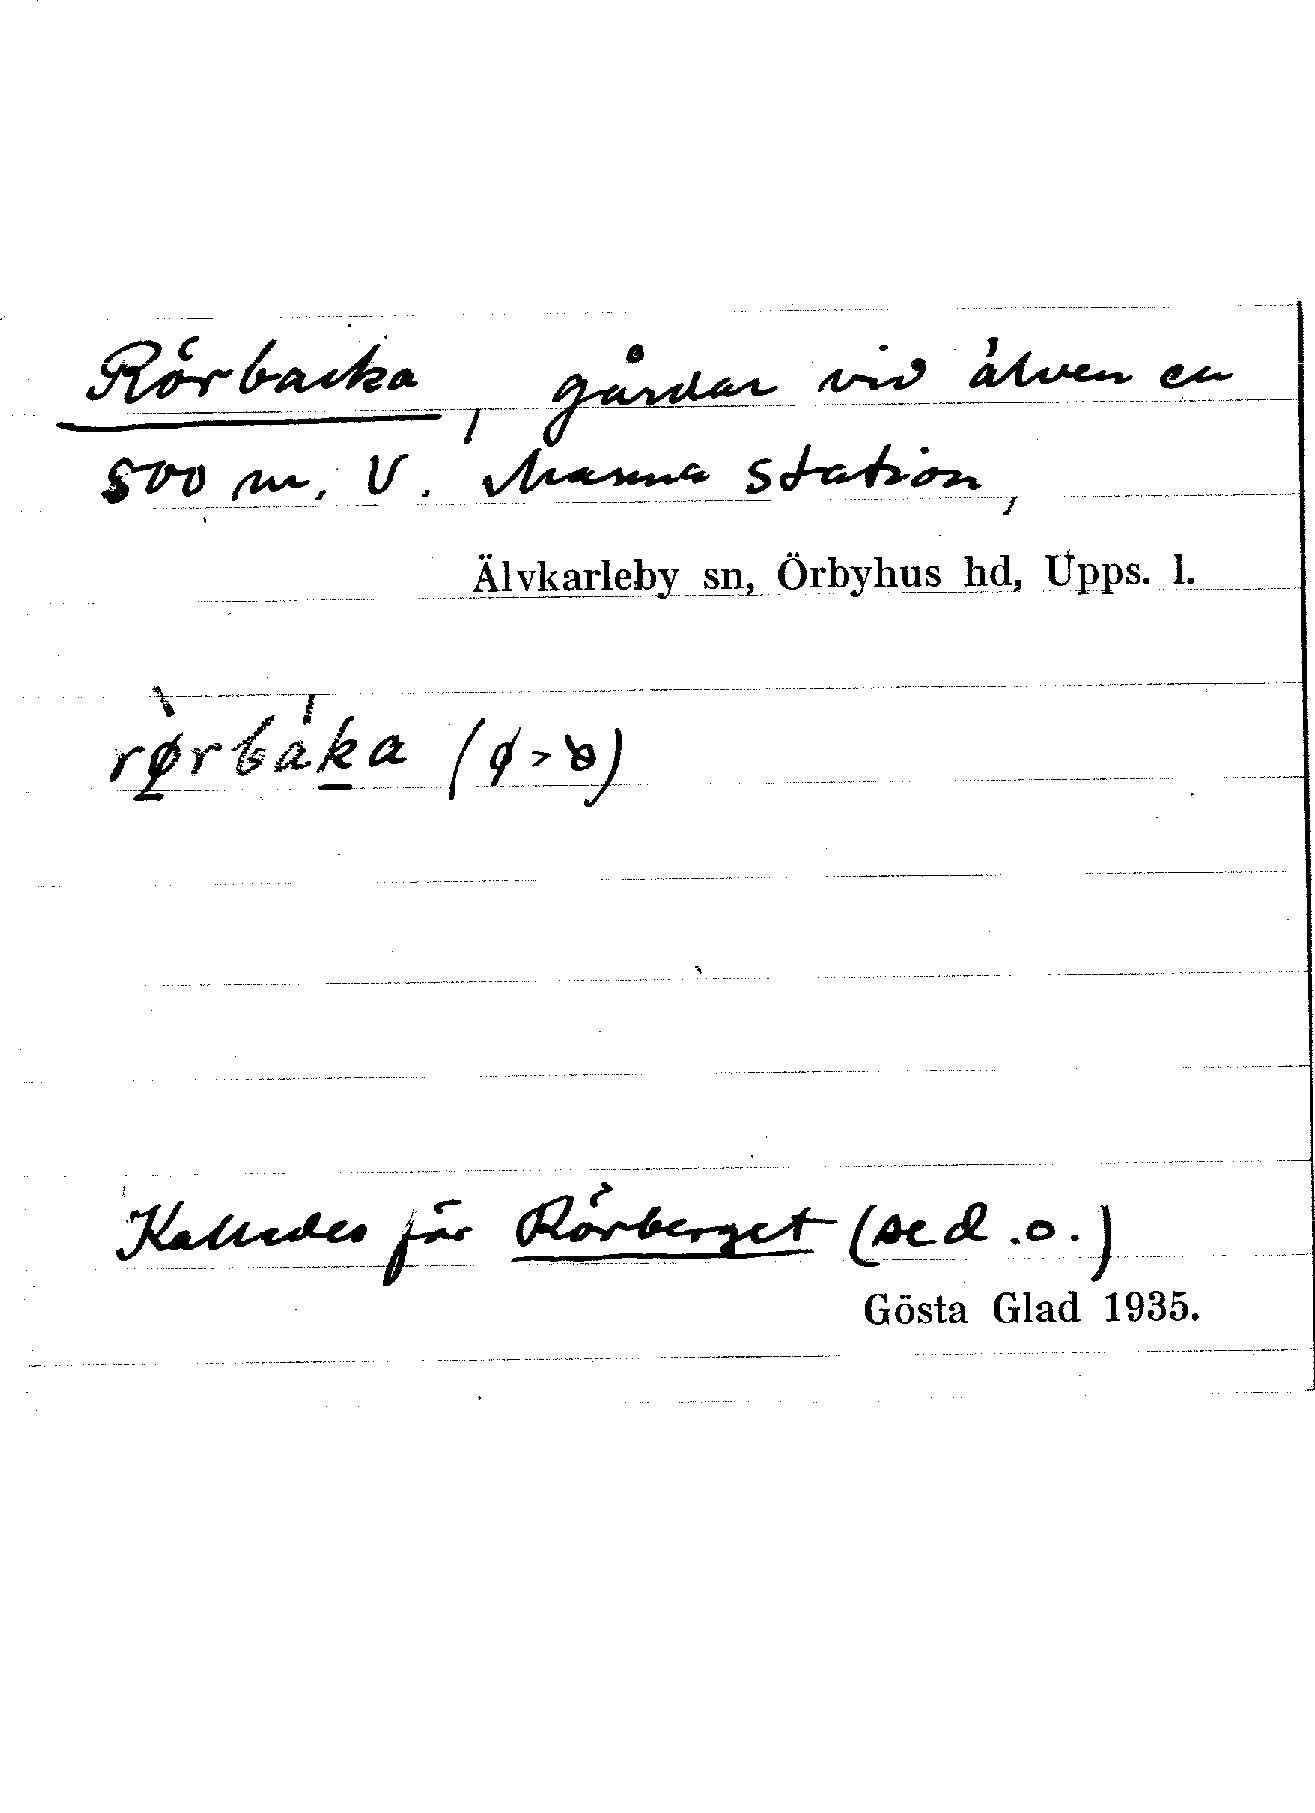 Rörbacka, gårdar vid älven ca
500 m. V. Marma station,
Älvkarleby sn, Örbyhus hd, Upps. l.
rø̀rbáka (ø > ꝋ)
Kallades för Rörberget (se d. o.)
Gösta Glad 1935.